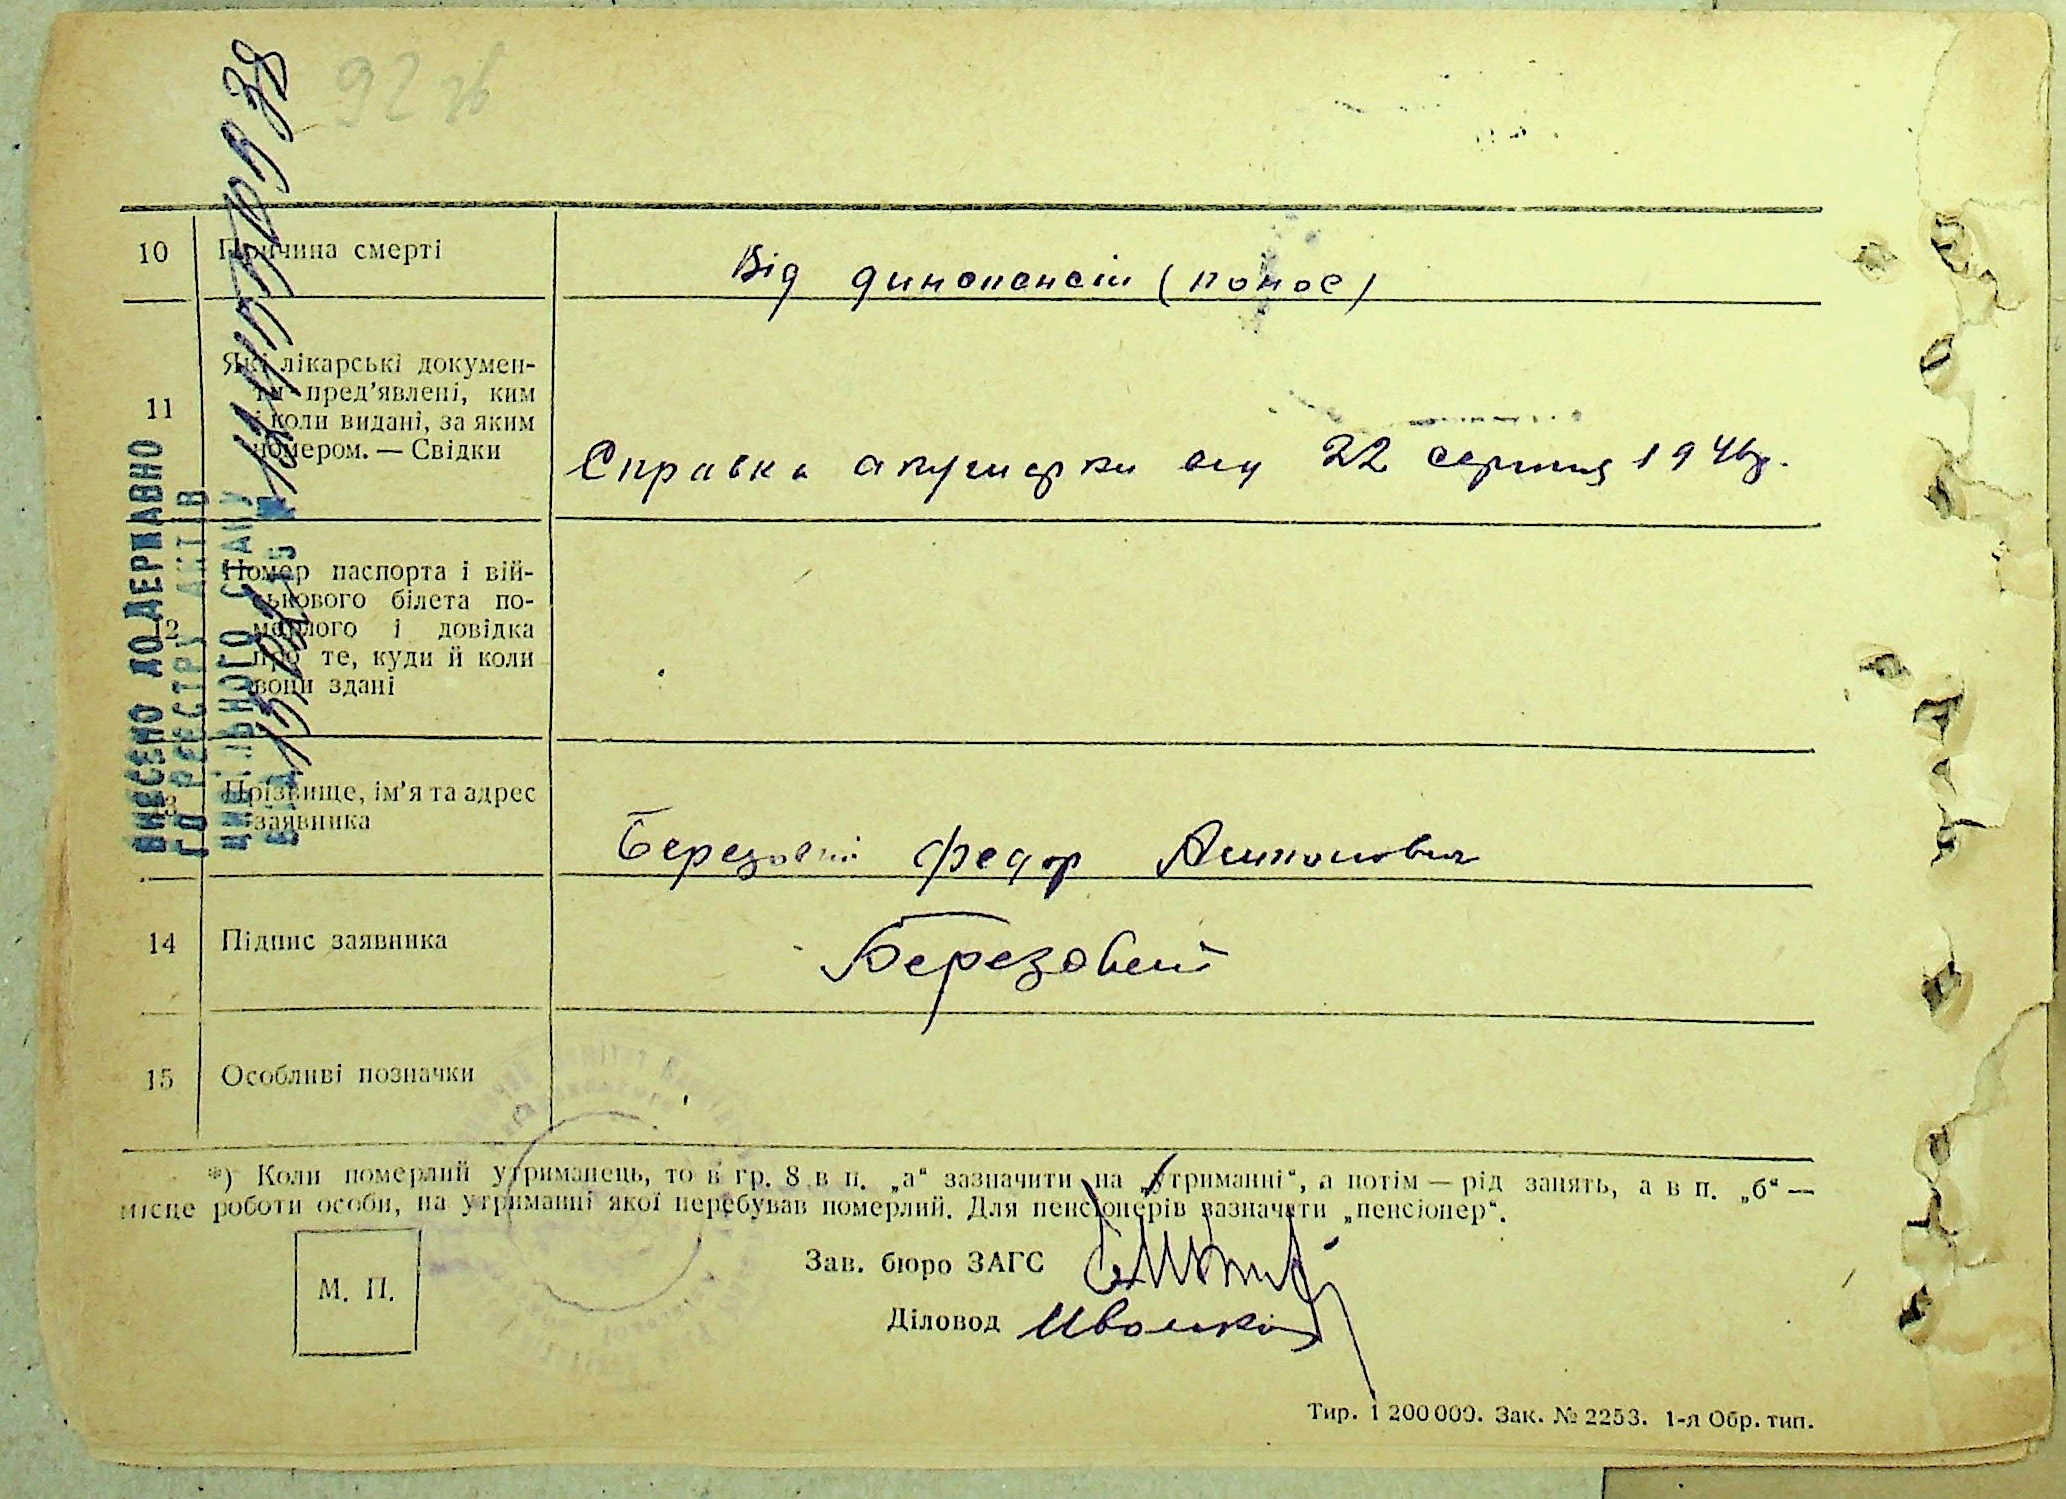 92 зв
10 Причина смерті
Від диспепсіи (понос)
11 Які лікарські докумен-
ти пред'явлені, ким
і коли видані, за яким
номером. — Свідки
Справка акушерки від 22 серпня 194
12 Номер паспорта і вій-
ськового білета по-
мерлого і довідка
про те, куди й коли
вони здані
13 Прізвище, ім'я та адрес
заявника
Березовий Федор Антонович
14 Підпис заявника
Березовий
15 Особливі позначки
*) Коли померлий утриманець, то в гр. 8 в п. „а“ зазначити на „утриманні“, а потім — рід занять, а в п. „б“ —
місце роботи особи, на утриманні якої перебував померлий. Для пенсіонерів зазначати „пенсіонер“.
Зав. бюро ЗАГС
М. П.
Діловод
Тир. 1 200 000. Зак. № 2253. 1-я Обр. тип.
ВНЕСЕНО ДО ДЕРЖАВНО
ГО РЕЄСТРУ АКТІВ
ЦИВІЛЬНОГО СТАНУ
ВІД №